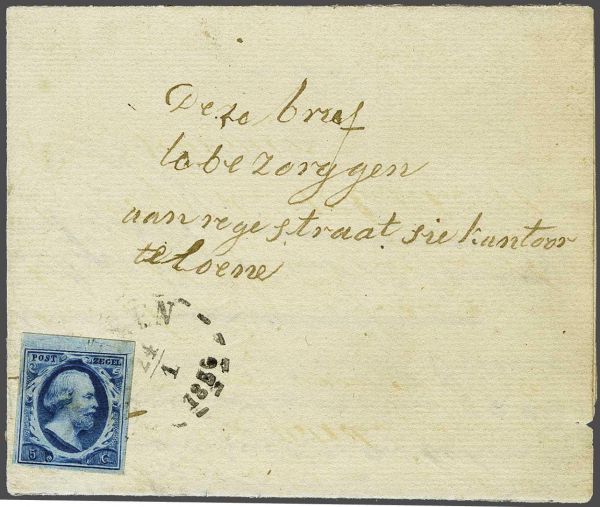 Deze brief
te bezorggen
aan regestraatsie kantoor
te Loene
EN
24
1
1856
POST ZEGEL
5 C.